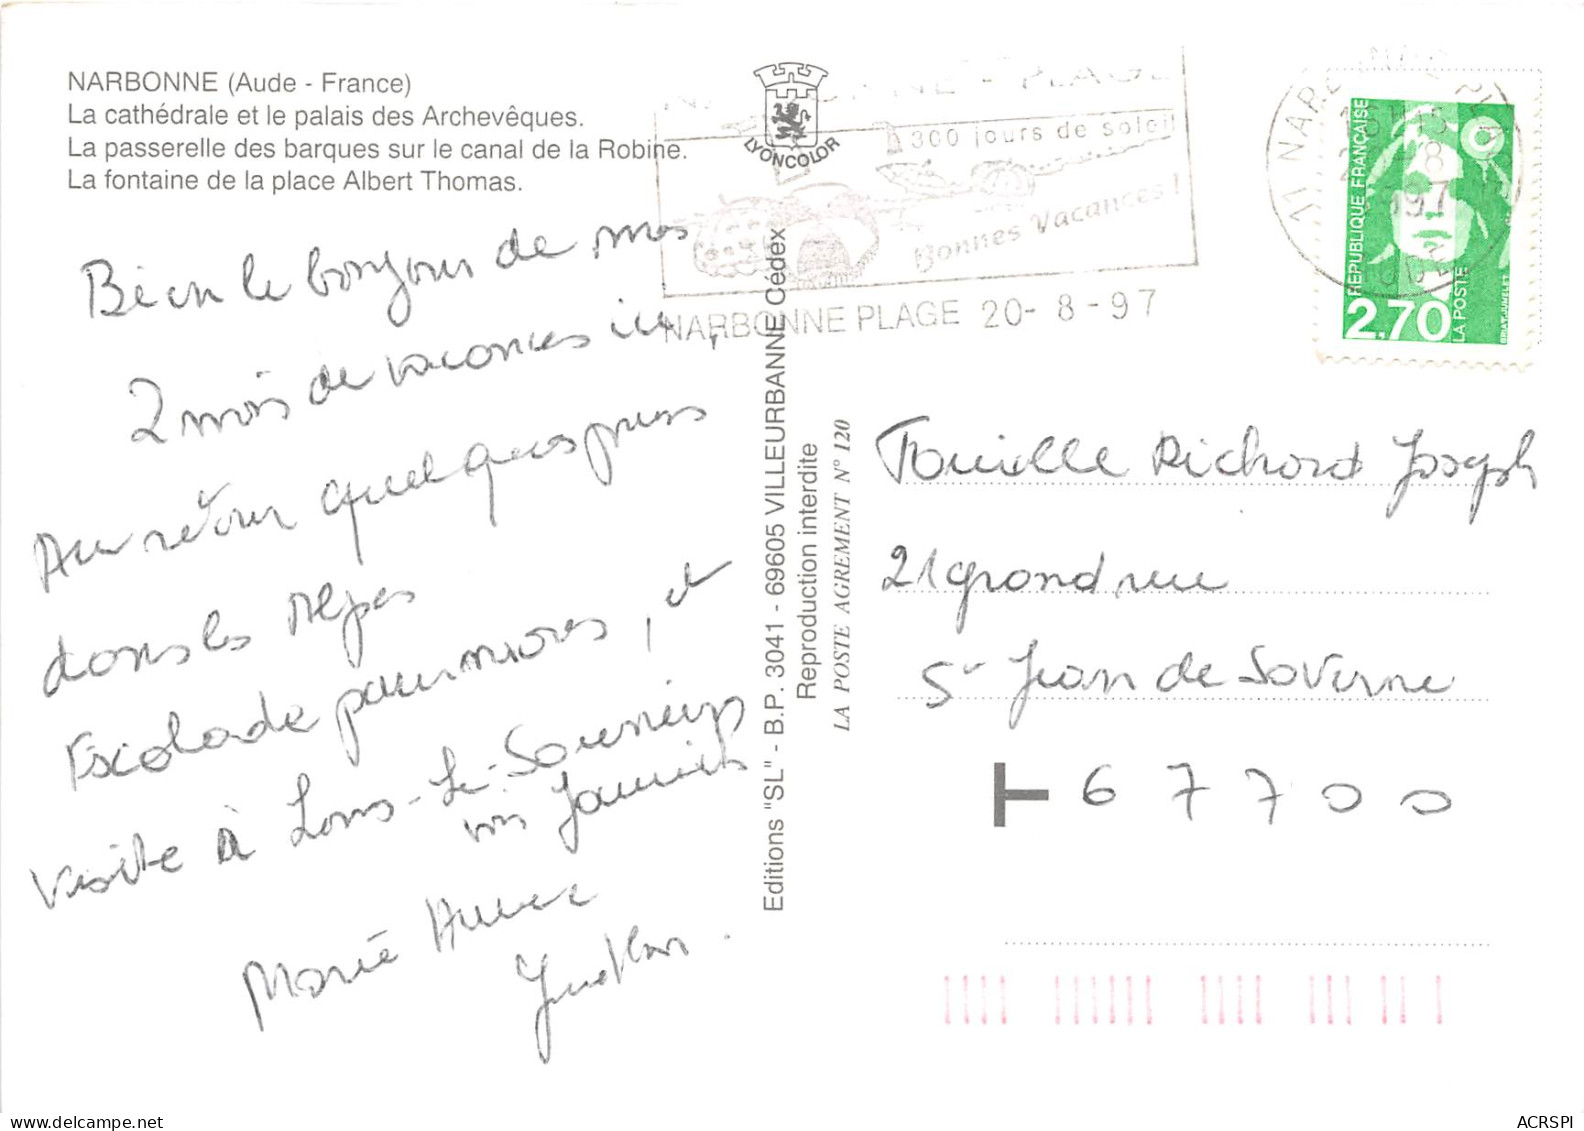 NARBONNE (Aude - France)
La cathédrale et le palais des Archevêques.
La passerelle des barques sur le canal de la Robine.
La fontaine de la place Albert Thomas.
LYONCOLOR
NARBONNE - PLAGE
300 jours de soleil
Bonnes Vacances !
NARBONNE PLAGE 20-8-97
11 NARBONNE PLAGE
16H15
20-8
1997
AUDE
REPUBLIQUE FRANÇAISE
2,70
LA POSTE
BRIAT-JUMELET
Bien le bonjour de mes
2 mois de vacances ici,
Au retour quelques jours
dans les Alpes
Escalade pour moi, et
visite à Lons-Le-Saunier
Marie
Editions "SL" - B.P. 3041 - 69605 VILLEURBANNE Cédex
Reproduction interdite
LA POSTE AGREMENT N° 120
Famille Richard Joseph
21 grand rue
St Jean de Saverne
T 67700
ACRSPI